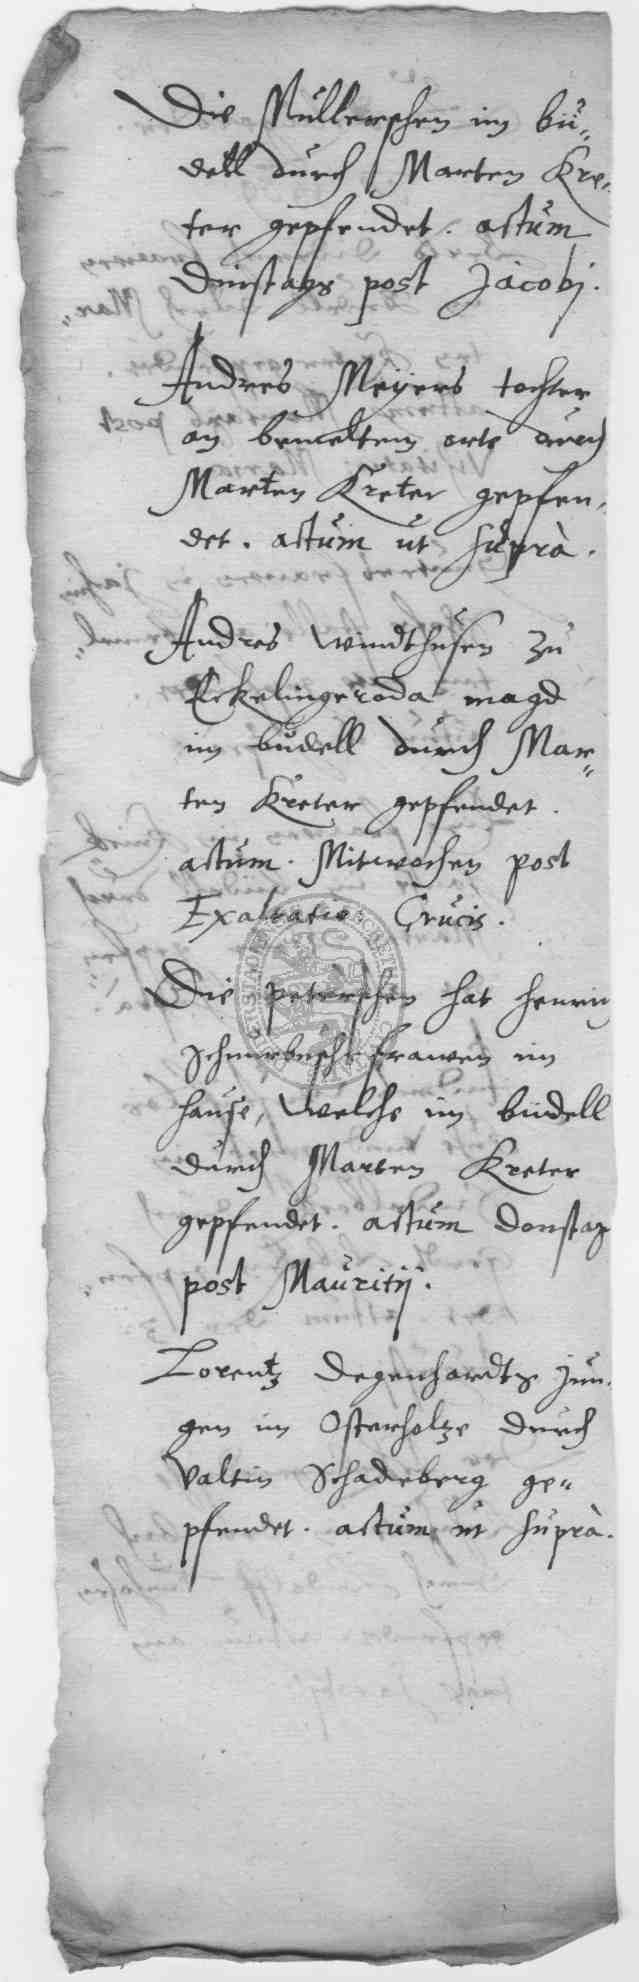 Die Müllerschen im bü„
dell durch Marten Kre„
ter gepfendet. actum
Dinstags post Jacobj.
Andres Meÿers tochter
an bemeltem orte durch
Marten Kreter gepfen„
det. actum ut suprà.
Andres Windthusen zu
Eckelingeroda magd
im budell durch Mar„
ten Kreter gepfendet.
actum. Mitwochen post
Exaltatio Crucis.
Die Peterschen hat henrig
frawen im
hause, welche im büdell
durch Marten Kreter
gepfendet. actum Donstag
post Mauritij.
Lorentz Degenhardts Jun„
gen im Osterholtze durch
Valtin Schadeberg ge„
pfendet. actum ut suprà.